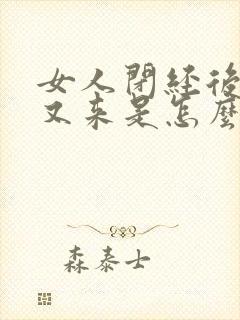 女人閉経後
又来是怎麼
森泰士